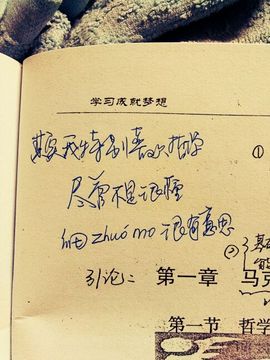 学习成就梦想
其实我特别喜欢哲学
①
尽管不是很懂
细zhuó mo很有意思
②
引论：
第一章 马克
第一节 哲学